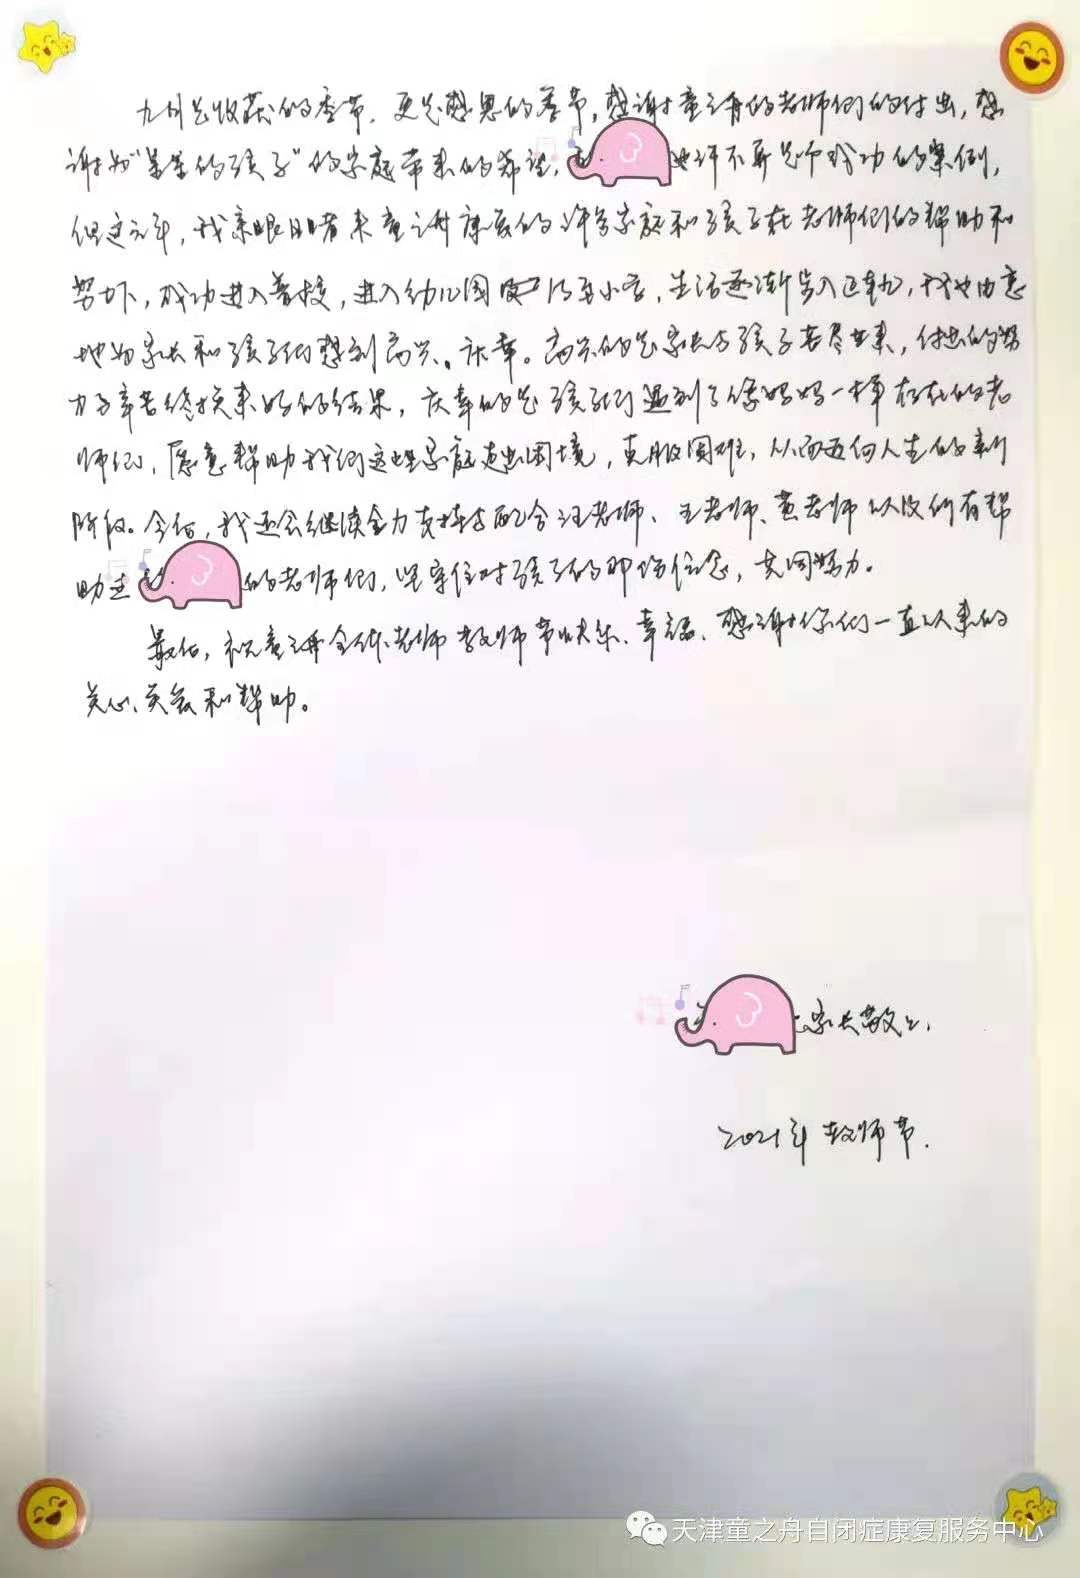 九月是收获的季节，更是感恩的季节，感谢童之舟的老师们的付出，感
谢为“星星的孩子”的家庭带来的希望，也许不算是个成功的案例，
但这三年，我亲眼目睹来童之舟康复的许多家庭和孩子在老师们的帮助和
努力下，成功进入普校，进入幼儿园乃至小学，生活逐渐步入正轨，我也由衷
地为家长和孩子们感到高兴、庆幸。高兴的是家长与孩子苦尽甘来，付出的努
力与辛苦终换来好的结果，庆幸的是孩子们遇到了像妈妈一样存在的老
师们，愿意帮助我们这些家庭走出困境，克服困难，从而迈向人生的新
阶段。今后，我还会继续全力支持与配合汪老师、王老师、黄老师以及所有帮
助过的老师们，坚守住对孩子的那份信念，共同努力。
最后，祝童之舟全体老师教师节快乐、幸福、感谢你们一直以来的
关心、关爱和帮助。
家长敬上.
2021年教师节.
天津童之舟自闭症康复服务中心